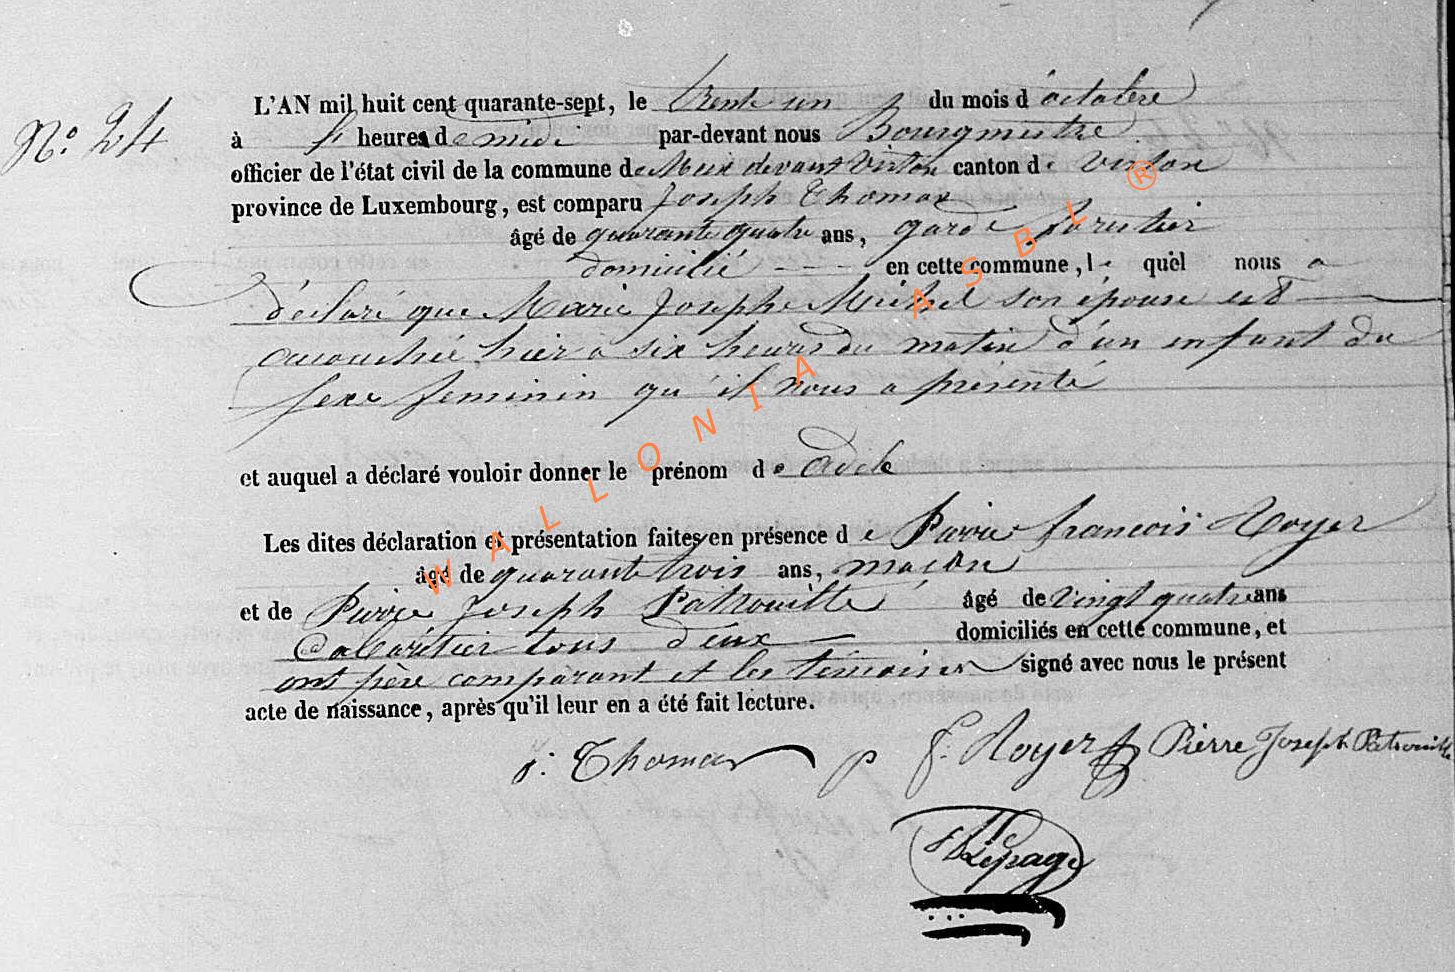 N.o 24
L'AN mil huit cent quarante-sept, le trente un du mois d'octobre
à heures de midi par-devant nous Bourgmestre
officier de l'état civil de la commune de Meix devant Virton canton de Virton
province de Luxembourg, est comparu Joseph Thomas
âgé de quarante quatre ans, garde forestier
domicilié - - - en cette commune, le quel nous a
déclaré que Marie Josephe Michel son épouse est
accouchée hier à six heures du matin d'un enfant du
sexe feminin qu'il nous a présenté
et auquel a déclaré vouloir donner le prénom de Adele
Les dites déclaration et présentation faites en présence de Pierre françois Royer
âgé de quarante trois ans, maçon
et de Pierre Joseph Patrouille âgé de vingt quatre ans
Cabaretier tous deux domiciliés en cette commune, et
ont père comparant et les témoins signé avec nous le présent
acte de naissance, après qu'il leur en a été fait lecture.
j: Thomas p f. Royer Pierre Joseph Patrouille
Lepage
WALLONIA ASBL ®